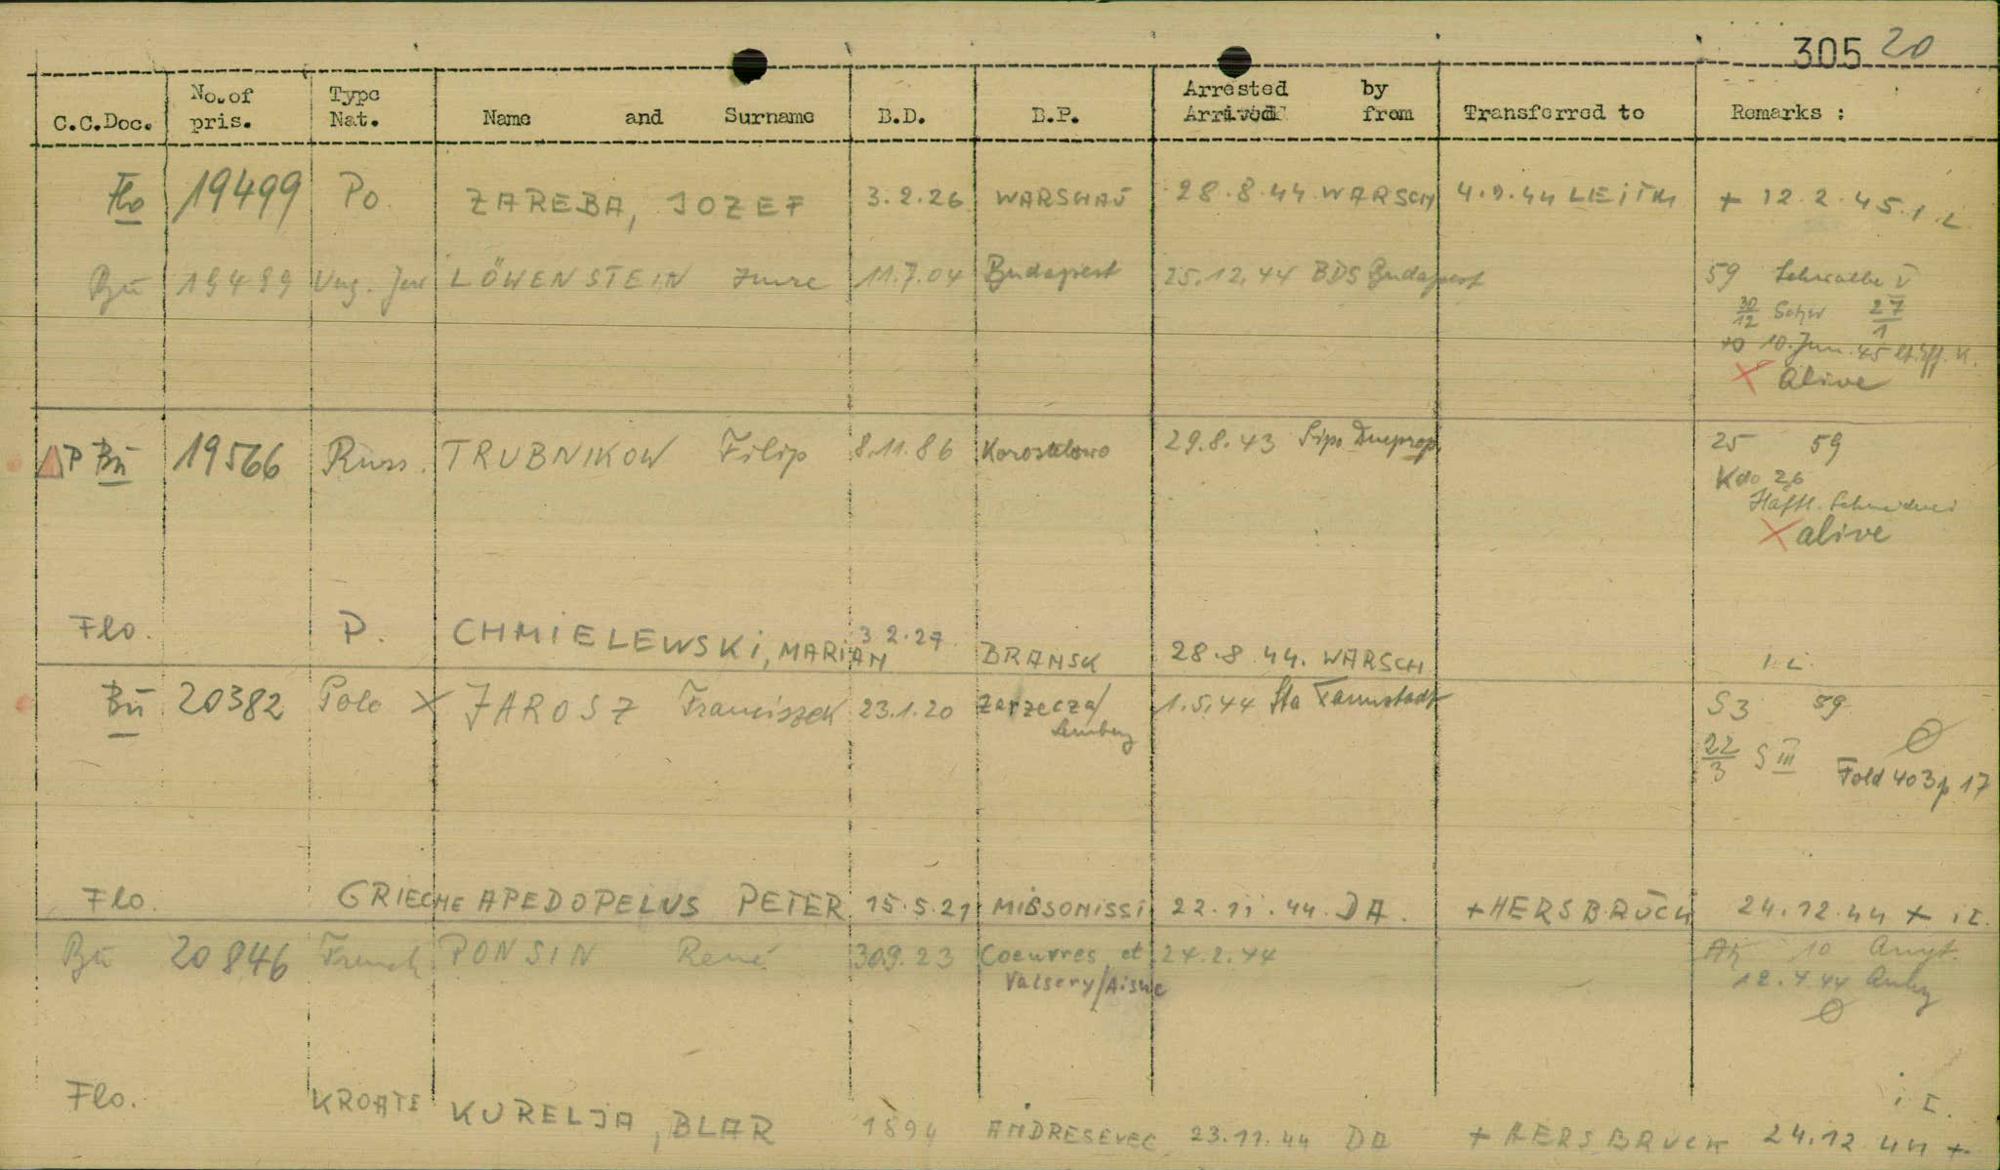 305 20
C.C.Doc. No.of pris. Type Nat. Name and Surname B.D. B.P. Arrested by Arrived from Transferred to Remarks :
Flo 19499 Po. ZAREBA, JOZEF 3.2.26 WARSHAU 28.8.44 WARSCH 4.9.44 LEITM + 12.2.45. I L
Bu 19499 Ung. Jew LÖWENSTEIN Imre 11.7.04 Budapest 25.12.44 BDS Budapest 59 Schwalbe V
30/12 Schw 27/1
10. Jan. 45
X alive
P Bu 19566 Russ. TRUBNIKOW Filip 8.11.86 29.8.43 Sipo Dneprop. 25 59
Kdo 26
Häftl. Schneiderei
X alive
Flo. P. CHMIELEWSKi, MARIAN 3 2.27 BRANSK 28.8.44. WARSCH I L.
Bu 20382 Pole X JAROSZ Franciszek 23.1.20 Zarzecza/ 1.5.44 Sta S3 59
Lemberg
22/3 S III Fold 403 p 17
Flo. GRIECHE APEDOPELUS PETER 15.5.21 MISSONISSI 22.11.44 DA. + HERSBRUCK 24.12.44 + i L.
Bu 20846 French PONSIN René 30.9.23 Coeuvres et 24.2.44 10
Valsery/Aisne 12.4.44
i L.
Flo. KROATE KURELJA, BLAR 1894 ANDRESEVEC 23.11.44 DA + HERSBRUCK 24.12.44 +